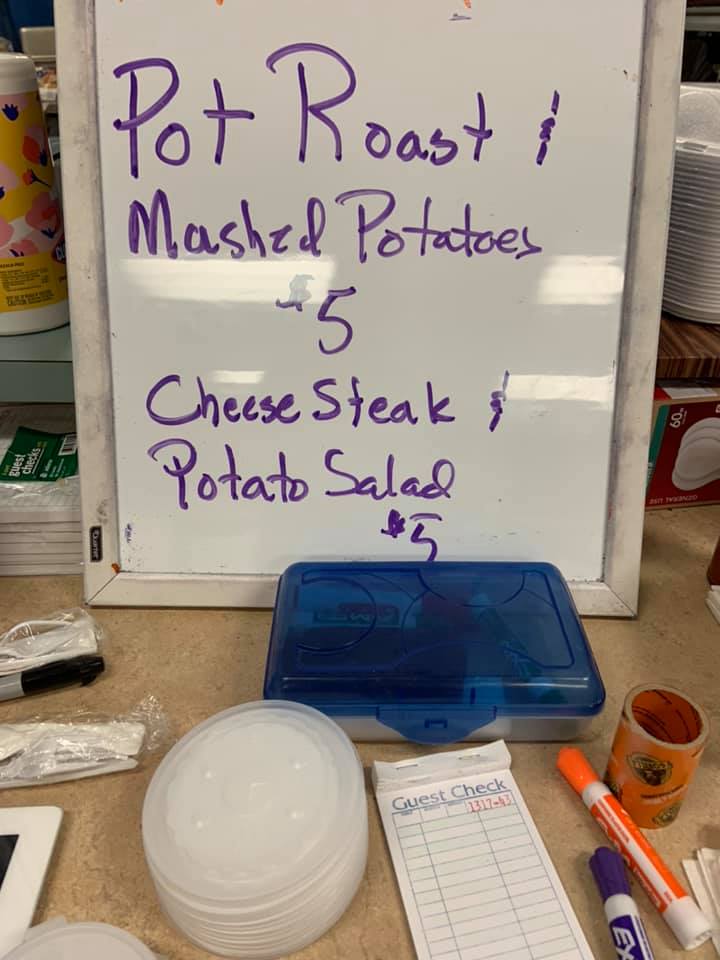 Pot Roast &
Mashed Potatoes
$5
Cheese Steak &
Potato Salad
$5
guest
checks
Quartet
60
GENERAL USE
CAUTION
Guest Check
1317-43
EX